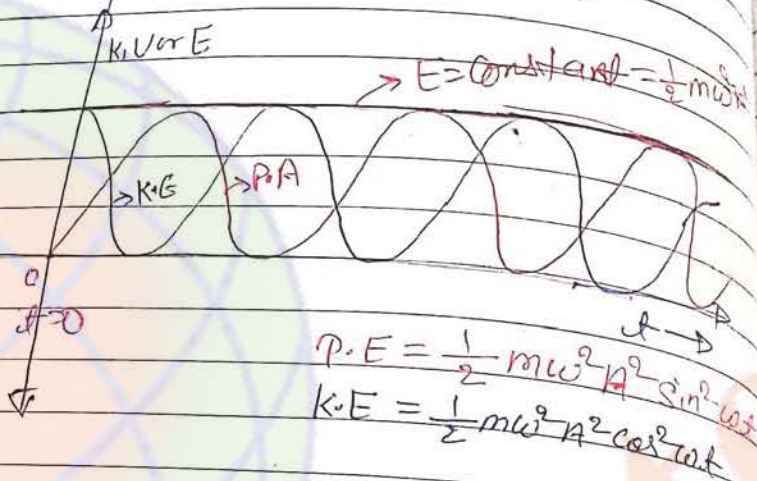 K, U or E
E = Constant = 1/2 mω²A²
K.E
P.A
O
t=0
t →
P.E = 1/2 mω²A² Sin² ωt
K.E = 1/2 mω²A² cos² ωt